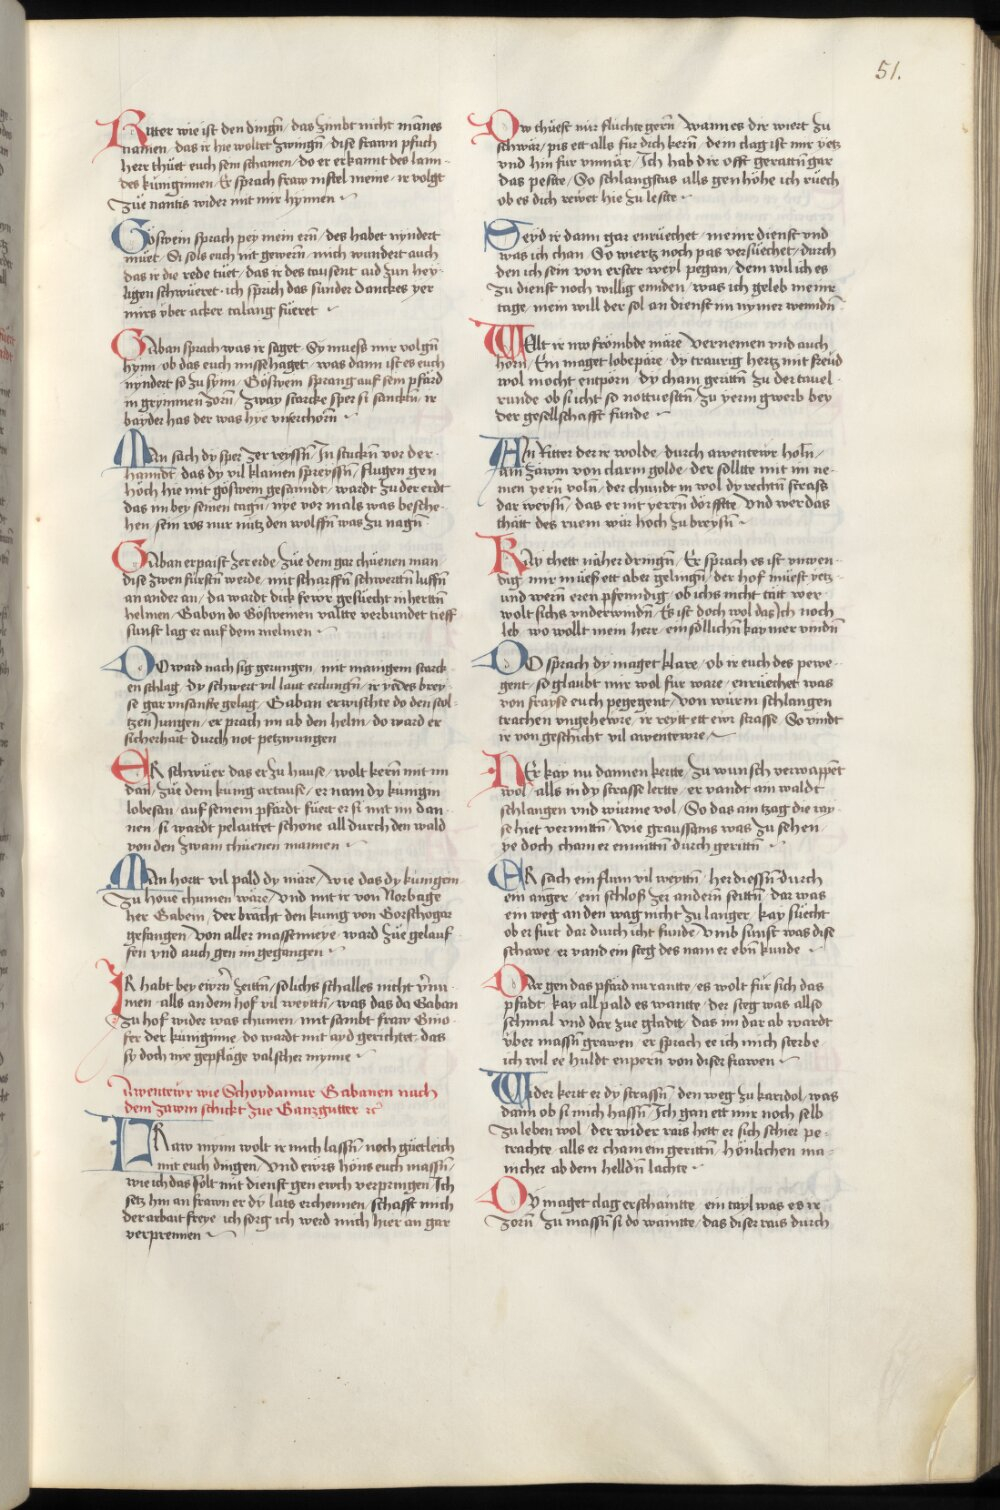 51.
Ritter wie ist den dingñ / das zimbt nicht mãnes
namen / das ir hie woltet zwingñ / dise frawn pfuch
herr thüet euch sein schamen / do er erkannt des lann-
des künginnen / Er sprach fraw niftel meine / ir volgt
züe nantis wider mit mir hynnen
Göswein sprach pey mein ern̄ / des habet nyndert
müet / Si sols euch nit gewern̄ / mich wundert auch
das ir die rede tüet / das ir des tausent aid zun hey-
ligen schwüeret · ich sprich das sunder danckes yer
mirs vber acker talang füeret
Gaban sprach was ir saget / Sy muess mir volgñ
hynn / ob das euch missehaget / was dann ist es euch
nyndert so zu synn / Göswein sprang auf sein pfärd
in grymmen zorn̄ / zway starcke sper si sancktñ / ir
bayder has der was hye vnerchorn̄
Man sach dy sper zer reyssñ / In stuckñ vor der
hanndt / das dy vil klainen spreyssñ / flugen gen
höch hie mit göswein gesanndt / wardt zu der erdt
das im bey seinen tagñ / nye vor mals was besche-
hen / sein ros nur nütz den wolffñ was zu nagñ
Gaban erpaist zer erde / züe dem gar chüenen man /
dise zwen fürstñ werde / mit scharffñ schwerttñ luffñ
an ander an / da wardt dick fewr gesüecht in herttñ
helmen / Gabon do Gösweinen valtte verbundet tieff
sunst lag er auf dem melmen
Do ward nach sig gerungen / mit manigem starck-
en schlag / dy schwert vil laut erclungñ / ir yedes brey-
se gar vnsanfte gelag / Gaban erwischte do den stol-
tzen Jungen / er prach im ab den helm / do ward er
sicherhait durch not petzwungen
Er schwüer das er zu hause / wolt kern̄ mit im
dan / züe dem kung artause / er nam dy kunigin
lobesan / auf seinem pfärdt füert er si mit im dan-
nen / si wardt pelaittet schone all durch den wald
von den zwain chüenen mannen
Man hortt vil pald dy märe / wie das dy kunigein
zu houe chumen wäre / Vnd mit ir von Norbage
her Gabein / der bracht den kung von Gorschogar
gefangen / Von aller massenneye / ward züe gelauf-
fen vnd auch gen im gegangen
Ir habt bey ewrn̄ zeittñ / solichs schalles nicht v̄nu-
men / als an dem hof vil weyttñ / was das da Gaban
zu hof wider was chumen / mit sambt fraw Gino-
fer der küniginne / do wardt mit ayd gerichtet / das
sy doch nye gepfläge valscher mynne
Awentewr wie Schoydamur Gabanen nach
dem zawm schickt züe Ganzgutter ⁊c̄
Fraw mynn wolt ir mich lassñ / noch güetleich
mit euch dingen / Vnd ewrs höns euch massñ /
wie ich das solt mit dienst gen ewch verpringen / Ich
setz hin an frawn er dy lats erchennen / schafft mich
der arbait freye / ich sorg ich werd mich hier an gar
verprennen
Ow chüest mir fluchte gern̄ / wann es dir wiert zu
schwär / pis ett alls für dich kern̄ / dem clag ist mir yetz
vnd hin für vnmär / Ich hab dir offt gerattñ gar
das peste / So schlangstus alls gen höhe ich ruech
ob es dich rewet hie zu leste
Seyd ir dann gar enrüechet / meinr dienst vnd
was ich chan / So wiertz noch pas versüechet / durch
den ich sein von erster weyl pegan / dem wil ich es
zu dienst noch willig ennden / was ich geleb meinr
tage / mein will der sol an dienst im nymer wenndñ
Welt ir nw frömbde märe / Vernemen vnd auch
horn̄ / Ein maget lobepäre / dy traurig hertz mit freüd
wol mocht entporn̄ / dy cham gerittñ zu der tauel-
runde / ob si icht so nottuesttñ zu yerm gwerb bey
der gesellschafft funde
Ain Ritter der ir wolde / durch awentewr holñ /
ain zäwm von clarm golde / der sollte mit im ne-
men yern̄ volñ / der chundt in wol dy rechtñ strass
dar weysñ / das er nit yerñ dörffte / Vnd wer das
thätt des ruem wür hoch zu breysñ
Käy chett näher dringñ / Er sprach es ist vnwen-
dig / mir müess ett aber gelingñ / der hof müest yetz-
und wein eren pfenndig / ob ichs nicht tätt wer
wolt sichs vnderwindñ / Es ist doch wol das ich noch
leb / wo wollt mein herr / ein sollichñ kay mer vindñ
Do sprach dy maget klare / ob ir euch des pewe-
gent / so glaubt mir wol fur ware / enrüechet was
von frayse euch pegegent / Von würm schlangen
trachen vngehewre / ir reytt ett ewr strasse / So vindt
ir von geschicht vil awentewre
Her kay nu dannen kertte / zu wunsch verwappēt
wol / alls in dy strasse lertte / er vandt ain waldt
schlangen vnd würme vol / So das am tzag die ray-
se hiet vermittñ / Wie graussams was zu sehen /
ye doch cham er enmittñ durch gerittñ
Er sach ein flum vil weyttñ / her diessñ durch
ein anger / ein schloß zer andern̄ seittñ / dar was
ein weg an den wag nicht zu langer / kay süecht
ob er furt dar durch icht funde / vmb sunst was dise
schawe / er vand ein steg des nam er ebñ kunde
Dar gen das pfärd nu rantte / es wolt für sich das
pfadt / kay all pald es wantte / der steg was allso
schmal vnd dar zue gladtt / das im dar ab wardt
vber massñ grawen / er sprach ee ich mich sterbe
ich wil ee huldt enpern von diser frawen
Wider kert er dy strassñ / den weg zu karidol / was
dann ob si mich hassñ / Ich gan ett mir noch selb
zu leben wol / der wider rais hett er sich schier pe-
trachte / alls er cham ein gerittñ / hönlichen ma-
nicher ab dem helldñ lachte
Dy maget clag erschainte / ein tayl was es ir
zorn̄ / zu massñ si do wainte / das diser rais durch